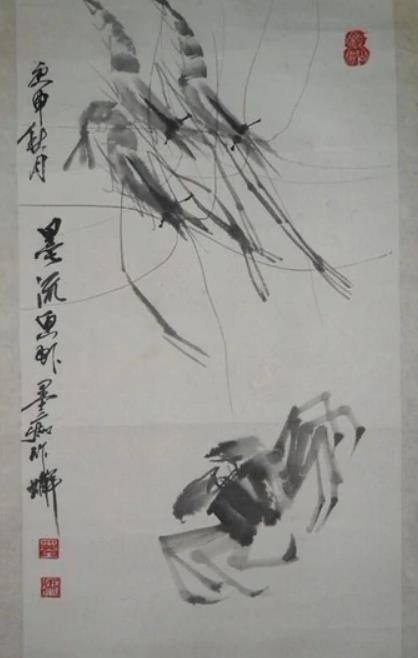 庚申秋月
墨流画虾墨痴作蟹